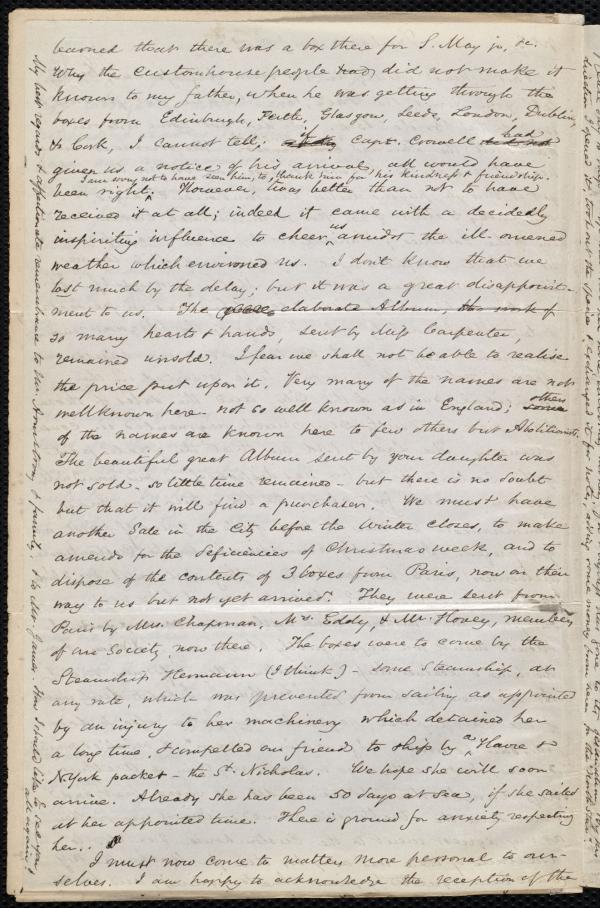 learned that there was a box there for S. May jr, &c.
Why the customhouse people had did not make it
known to my father, when he was getting through the
boxes from Edinburgh, Perth, Glasgow, Leeds, London, Dublin,
& Cork, I cannot tell; if Capt. Crowell did not had
given us a notice of his arrival, all would have
I am sorry not to have seen him, to thank him for his kindness & friendship.
been right; However, 'twas better than not to have
received it at all; indeed it came with a decidedly
inspiriting influence to cheer us amidst the ill-omened
weather which environed us. I don't know that we
lost much by the delay; but it was a great disappoint-
ment to us. The elaborate Album, the work of
so many hearts & hands, sent by Miss Carpenter,
remained unsold. I fear we shall not be able to realise
the price put upon it. Very many of the names are not
well known here - not so well known as in England; some others
of the names are known here to few others but Abolitionists.
The beautiful great Album sent by your daughter was
not sold - so little time remained - but there is no doubt
but that it will find a purchaser. We must have
another Sale in the City before the Winter closes, to make
amends for the deficiencies of Christmas week, and to
dispose of the contents of 3 boxes from Paris, now on their
way to us but not yet arrived. They were sent from
Paris by Mrs. Chapman, Mrs. Eddy, & Mr. Hovey, members
of our Society, now there. The boxes were to come by the
Steamship Hermann (I think) - some Steamship, at
any rate, which was prevented from sailing as appointed
by an injury to her machinery which detained her
a long time, & compelled our friend to ship by a Havre &
N York packet - the St. Nicholas. We hope she will soon
arrive. Already she has been 50 days at sea, if she sailed
at her appointed time. There is ground for anxiety respecting
her..
I must now come to matters more personal to our-
selves. I am happy to acknowledge the reception of the
My best regards & affectionate remembrance to Mr. Armstrong & family, & to Mr. James. How I should like to see you
all again!